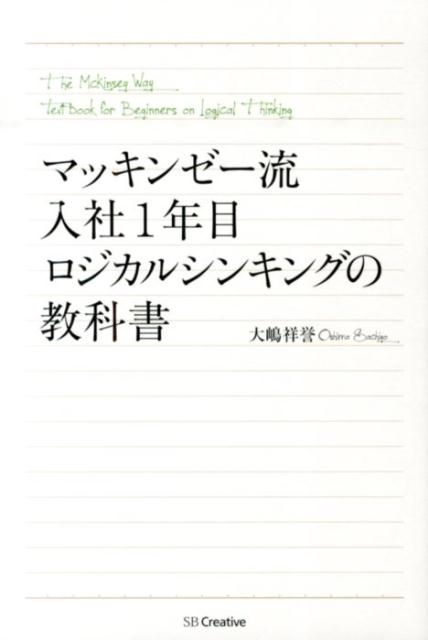 The McKinsey Way
Text Book for Beginners on Logical Thinking
マッキンゼー流
入社1年目
ロジカルシンキングの
教科書
大嶋祥誉 Oshima Sachiyo
SB Creative